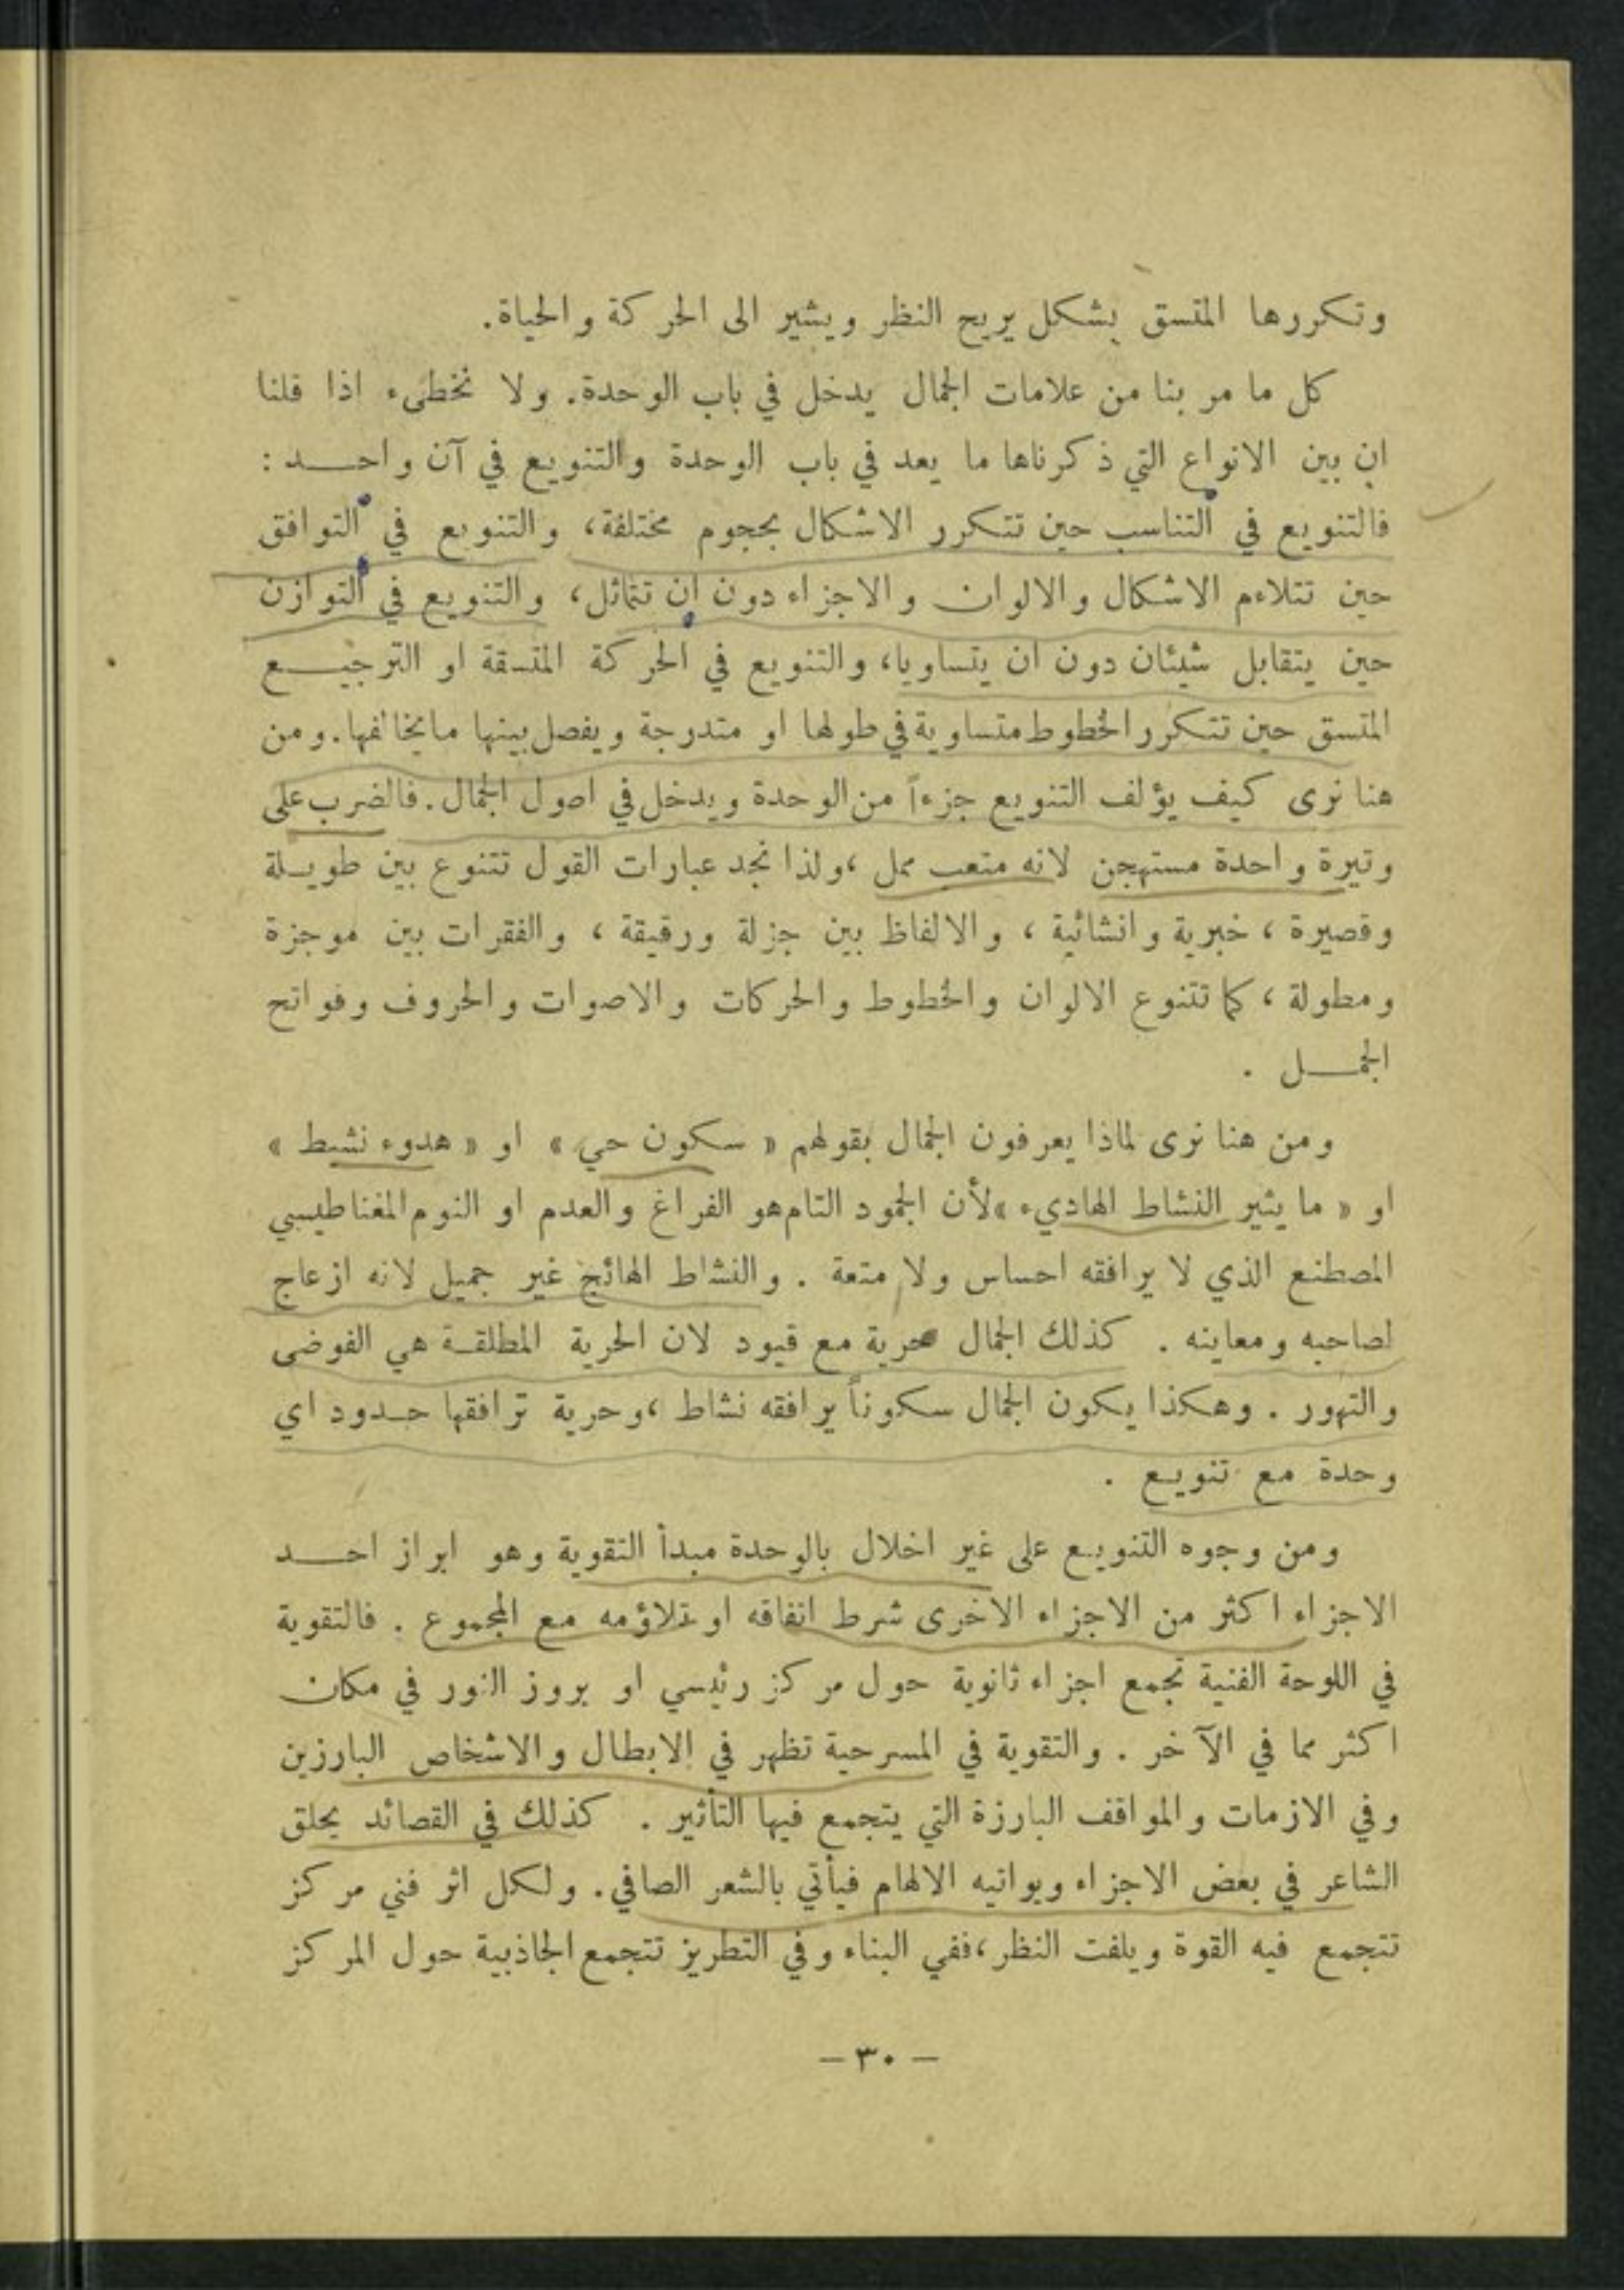 وتكررها المتسق بشكل يريح النظر ويشير الى الحركة والحياة.
كل ما مر بنا من علامات الجمال يدخل في باب الوحدة. ولا نخطىء اذا قلنا
ان بين الانواع التي ذكرناها ما يعد في باب الوحدة والتنويع في آن واحد :
فالتنويع في التناسب حين تتكرر الاشكال بحجوم مختلفة، والتنويع في التوافق
حين تتلاءم الاشكال والالوان والاجزاء دون ان تتماثل، والتنويع في التوازن
حين يتقابل شيئان دون ان يتساويا، والتنويع في الحركة المتسقة او الترجيع
المتسق حين تتكرر الخطوط متساوية في طولها او متدرجة ويفصل بينها ما يخالفها. ومن
هنا نرى كيف يؤلف التنويع جزءاً من الوحدة ويدخل في اصول الجمال. فالضرب على
وتيرة واحدة مستهجن لانه متعب ممل ، ولذا نجد عبارات القول تتنوع بين طويلة
وقصيرة ، خبرية وانشائية ، والالفاظ بين جزلة ورقيقة ، والفقرات بين موجزة
ومطولة ، كما تتنوع الالوان والخطوط والحركات والاصوات والحروف وفواتح
الجمل .
ومن هنا نرى لماذا يعرفون الجمال بقولهم « سكون حي » او « هدوء نشيط »
او « ما يثير النشاط الهاديء » لأن الجمود التام هو الفراغ والعدم او النوم المغناطيسي
المصطنع الذي لا يرافقه احساس ولا متعة . والنشاط الهائج غير جميل لانه ازعاج
لصاحبه ومعاينه . كذلك الجمال حرية مع قيود لان الحرية المطلقة هي الفوضى
والتهور . وهكذا يكون الجمال سكوناً يرافقه نشاط ، وحرية ترافقها حدود اي
وحدة مع تنويع .
ومن وجوه التنويع على غير اخلال بالوحدة مبدأ التقوية وهو ابراز احد
الاجزاء اكثر من الاجزاء الاخرى شرط اتفاقه او تلاؤمه مع المجموع . فالتقوية
في اللوحة الفنية تجمع اجزاء ثانوية حول مركز رئيسي او بروز النور في مكان
اكثر مما في الآخر . والتقوية في المسرحية تظهر في الابطال والاشخاص البارزين
وفي الازمات والمواقف البارزة التي يتجمع فيها التأثير . كذلك في القصائد يحلق
الشاعر في بعض الاجزاء ويواتيه الالهام فيأتي بالشعر الصافي. ولكل اثر فني مركز
تتجمع فيه القوة ويلفت النظر ، ففي البناء وفي التطريز تتجمع الجاذبية حول المركز
— ٣٠ —